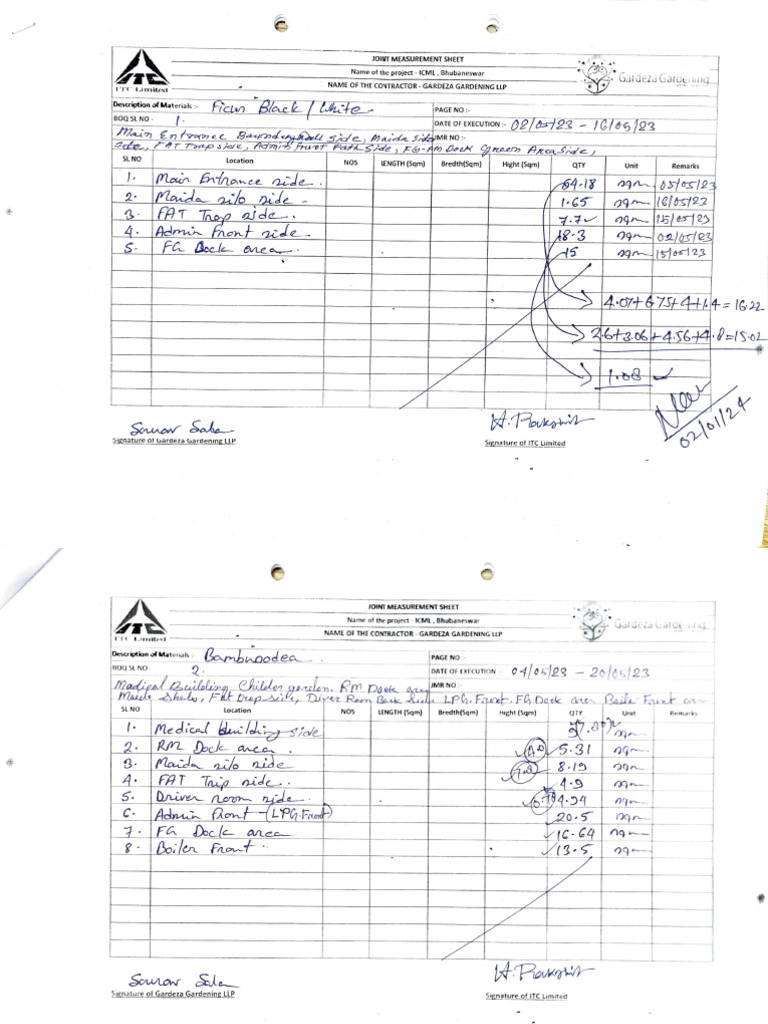 JOINT MEASUREMENT SHEET
Name of the project - ICML , Bhubaneswar
NAME OF THE CONTRACTOR - GARDEZA GARDENING LLP
ITC Limited
Gardeza Gardening
Description of Materials :- Ficus Black/White
PAGE NO :-
BOQ SL NO - 1.
DATE OF EXECUTION :- 02/05/23 - 16/05/23
JMR NO :-
Main Entrance Boundary Wall side, Maida Silo
side, FAT Trap side, Admin Front Path Side, FG-RM Dock Green Area Side,
SL NO Location NOS LENGTH (Sqm) Bredth(Sqm) Hight (Sqm) QTY Unit Remarks
1. Main Entrance side. 64.18 sqm 05/05/23
2. Maida silo side - 1.65 sqm 16/05/23
3. FAT Trap side. 7.7 sqm 15/05/23
4. Admin Front side. 18.3 sqm 02/05/23
5. FG Dock area. 15 sqm 15/05/23
4.07+6.75+4+1.4=16.22
2.6+3.06+4.56+4.8=15.02
1.08
02/01/24
Sourav Saha
H. Rakshit
Signature of Gardeza Gardening LLP
Signature of ITC Limited
JOINT MEASUREMENT SHEET
Name of the project - ICML , Bhubaneswar
NAME OF THE CONTRACTOR - GARDEZA GARDENING LLP
ITC Limited
Gardeza Gardening
Description of Materials :- Bambunodea
PAGE NO :-
BOQ SL NO - 2.
DATE OF EXECUTION :- 04/05/23 - 20/05/23
JMR NO :-
Madical Building Childer garden. RM Dock area
Maida Shalo, Fat trap side, Diver Room Back Side LPG. Front. FG Dock area Boile Front are
SL NO Location NOS LENGTH (Sqm) Bredth(Sqm) Hight (Sqm) QTY Unit Remarks
1. Medical building side sqm
2. RM Dock area. 5.31 sqm
3. Maida silo side 8.19 sqm
4. FAT Trip side. 4.9 sqm
5. Driver room side. 4.94 sqm
6. Admin front -(LPG.Front) 20.5 sqm
7. FG Dock area 16.64 sqm
8. Boiler Front 13.5 sqm
Sourav Saha
H. Rakshit
Signature of Gardeza Gardening LLP
Signature of ITC Limited